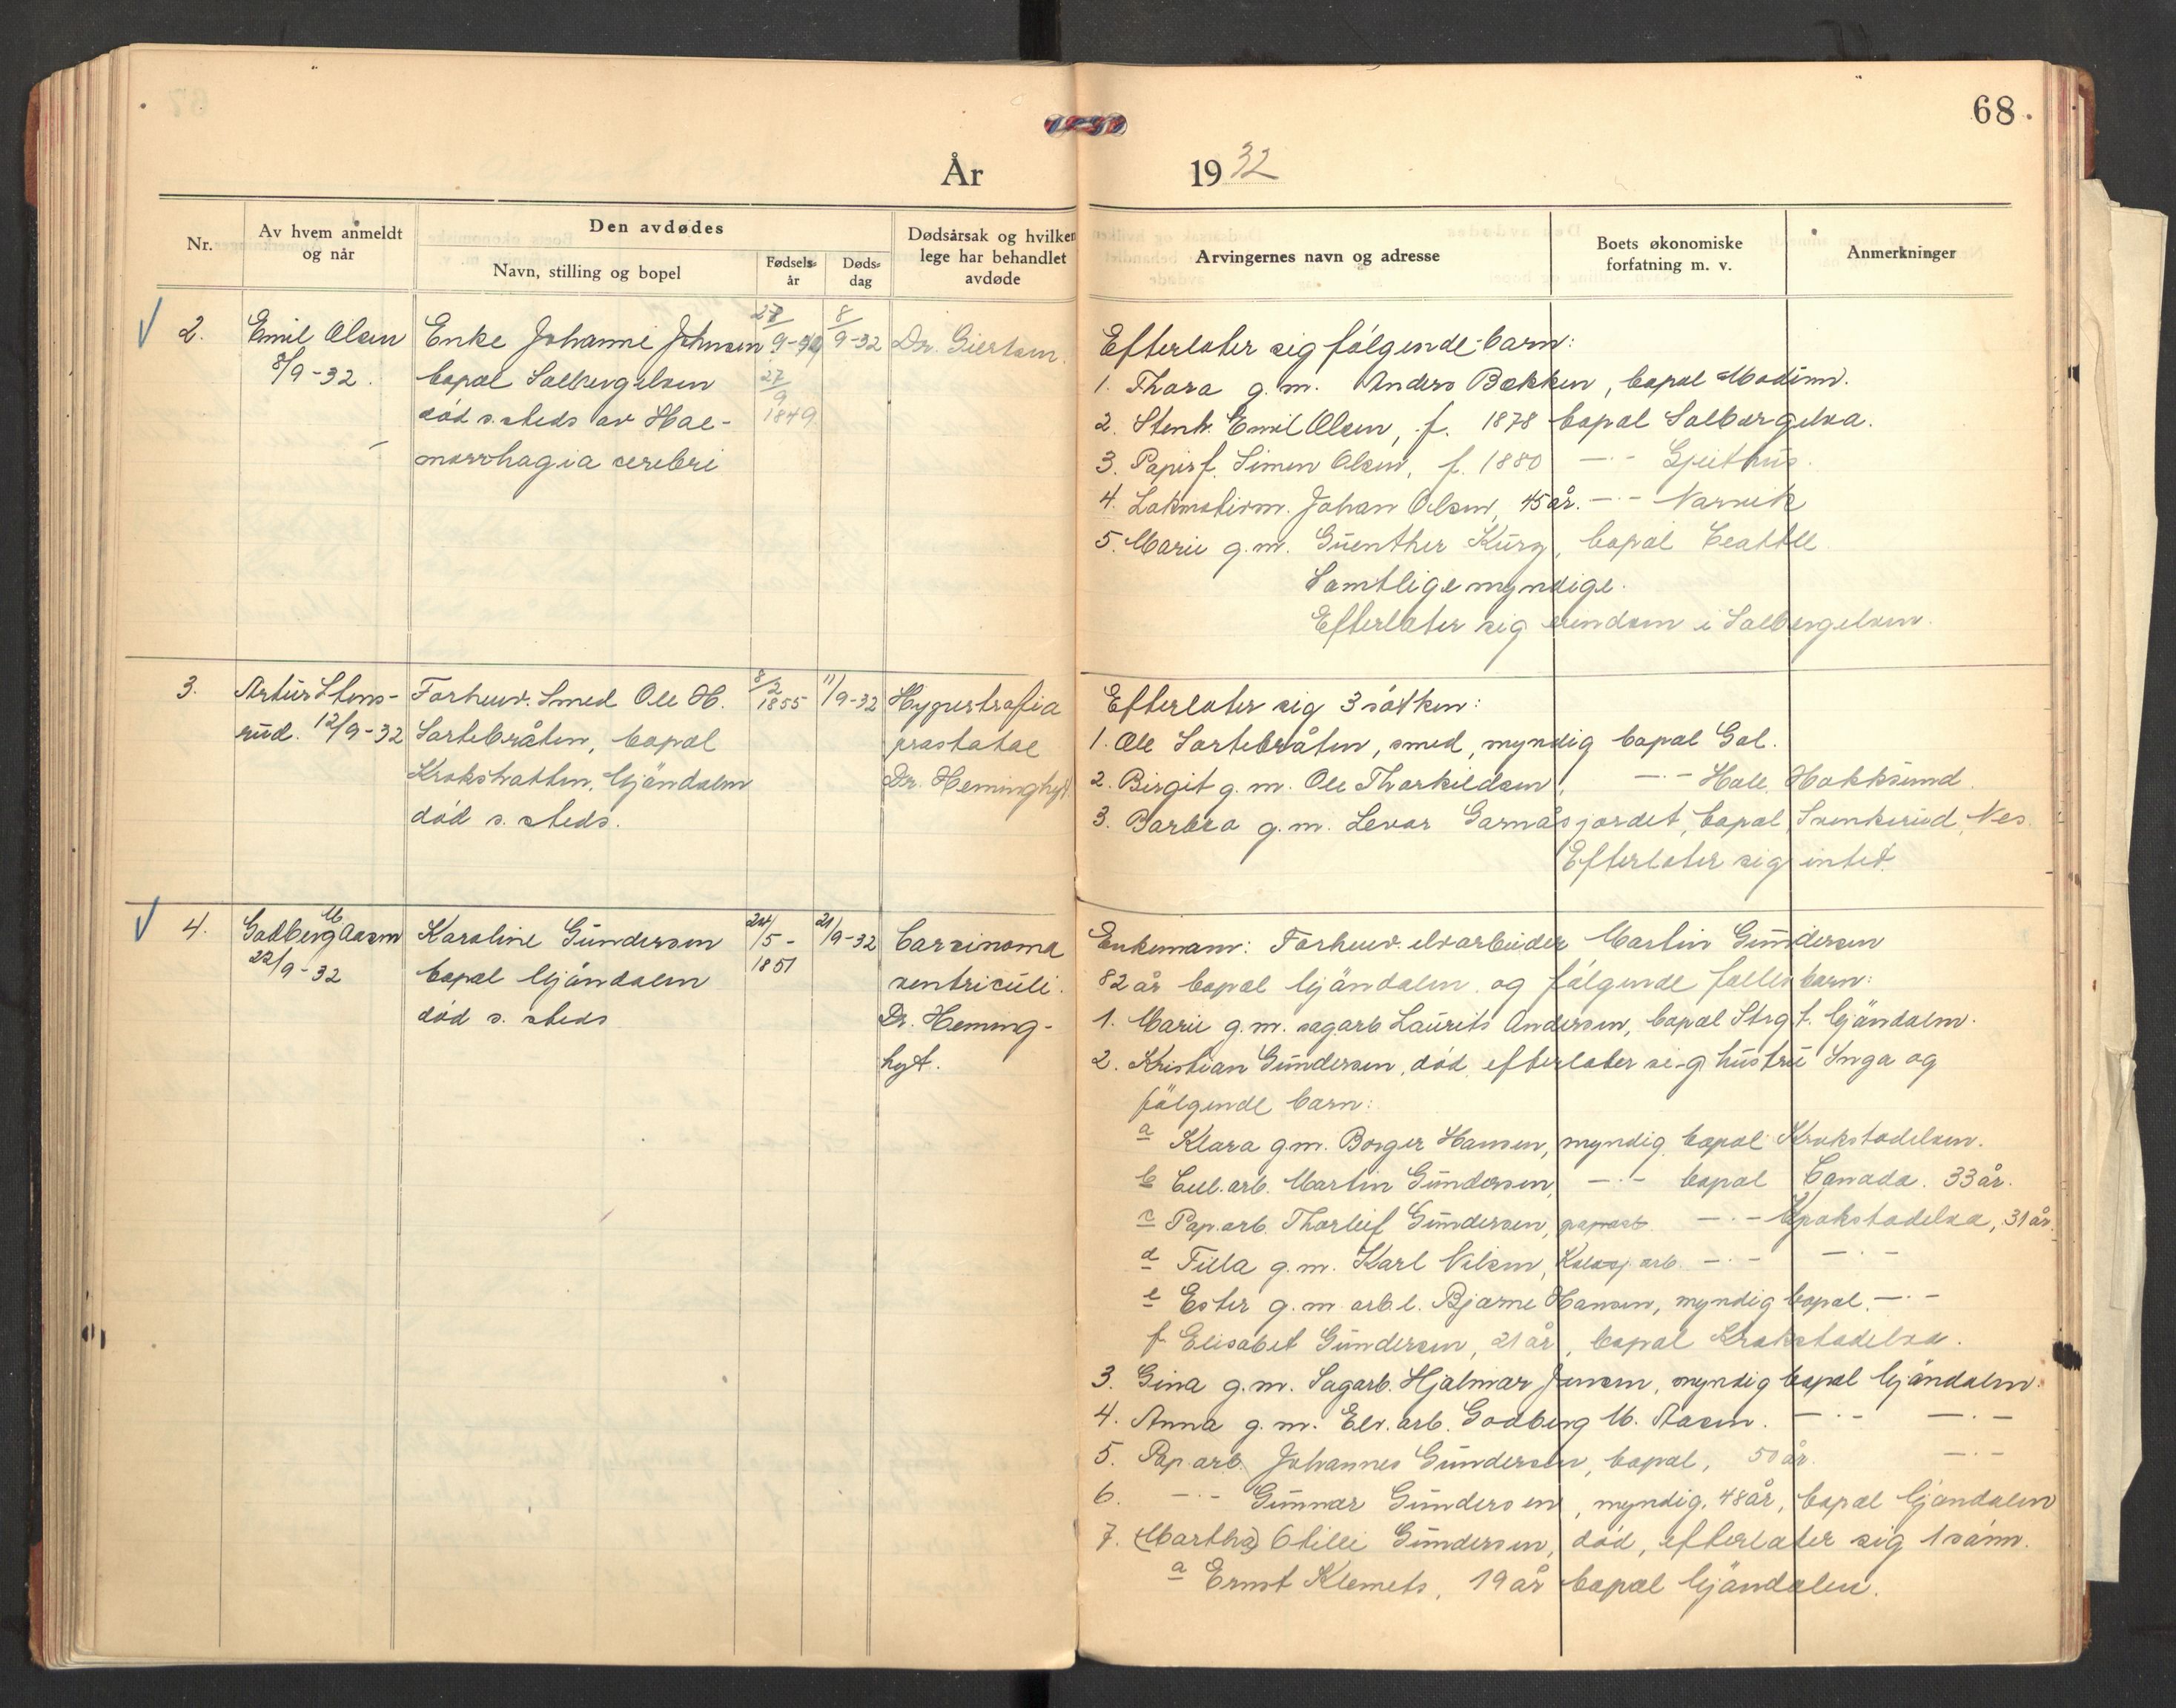 68.
År 1932
Nr.
Av hvem anmeldt og når
Den avdødes
Navn, stilling og bopel
Fødsels- år
Døds- dag
Dødsårsak og hvilken lege har behandlet avdøde
Arvingernes navn og adresse
Boets økonomiske forfatning m. v.
Anmerkninger
2.
Emil Olsen
8/9-32.
Enke Johanne Johnsen
bopæl Solbergelven
død s. steds av Hae-
morrhagia cerebri
27/9
1849
8/9-32
Dr. Giertsen.
Efterlater sig følgende barn:
1. Thora g.m. Anders Bækken, bopæl Modum.
2. Stenh. Emil Olsen, f. 1878 bopæl Solbergelva.
3. Papirf. Simen Olsen, f. 1880 —·— Geithus.
4. Lokmotivm. Johan Olsen, 45 år. —·— Narvik
5. Marie g.m. Guenther Kurz, bopæl Ceattle
Samtlige myndige.
Efterlater sig eiendom i Solbergelven.
3.
Artur Stens-
rud. 12/9-32
Forhenv. Smed Ole H.
Sortebråten, bopæl
Krokstratten, Mjøndalen
død s. steds.
8/2
1855
11/9-32
Hypertrofia
prostatae
Dr. Heminghyt
Efterlater sig 3 søsken:
1. Ole Sortebråten, smed, myndig bopæl Gol.
2. Birgit g.m. Ole Thorkildsen, —·— Hole, Hokksund.
3. Barbra g.m. Levor Garnåsjordet, bopæl Svenkerud, Nes.
Efterlater sig intet.
4.
Godberg M. Aasen
22/9-32
Karoline Gundersen
bopæl Mjøndalen
død s. steds
24/5-
1851
21/9-32
Carsinoma
ventriculi.
Dr. Heming-
hyt.
Enkemann: Forhenv. elvarbeider Martin Gundersen
82 år bopæl Mjøndalen og følgende felles barn:
1. Marie g.m. sagarb Laurits Andersen, bopæl Strgt. Mjøndalen.
2. Kristian Gundersen, død, efterlater sig hustru Inga og
følgende barn:
a Klara g.m. Borger Hansen, myndig bopæl Krokstadelven.
b Cell.arb. Martin Gundersen, —·— bopæl Canada. 33 år.
c Pap.arb. Thorleif Gundersen, —·— Krokstadelva, 31 år.
d Tilla g.m. Karl Nilsen, arb. —·— —·—
e Ester g.m. arb.l. Bjarne Hansen, myndig bopæl. —·—
f Elisabet Gundersen, 21 år, bopæl Krokstadelva.
3. Gina g.m. Sagarb. Hjalmar Jensen, myndig bopæl Mjøndalen.
4. Anna g.m. Elv.arb. Godberg M. Aasen. —·— —·—
5. Pap.arb. Johannes Gundersen, bopæl, 50 år. —·—
6. —·— Gunnar Gundersen, myndig, 48 år, bopæl Mjøndalen
7. (Martha) Otilie Gundersen, død, efterlater sig 1 sønn.
a Ernst Klemets, 19 år bopæl Mjøndalen.